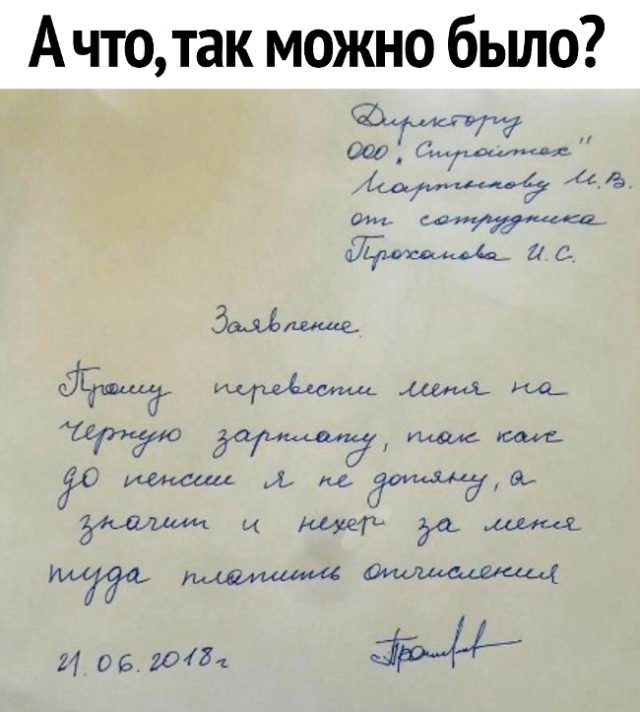 А что, так можно было?
Директору
ООО „Стройтех"
Мартынову М.В.
от сотрудника
Проханова И.С.
Заявление
Прошу перевести меня на
черную зарплату, так как
до пенсии я не дотяну, а
значит и нехер за меня
туда платить отчисления
21.06.2018г